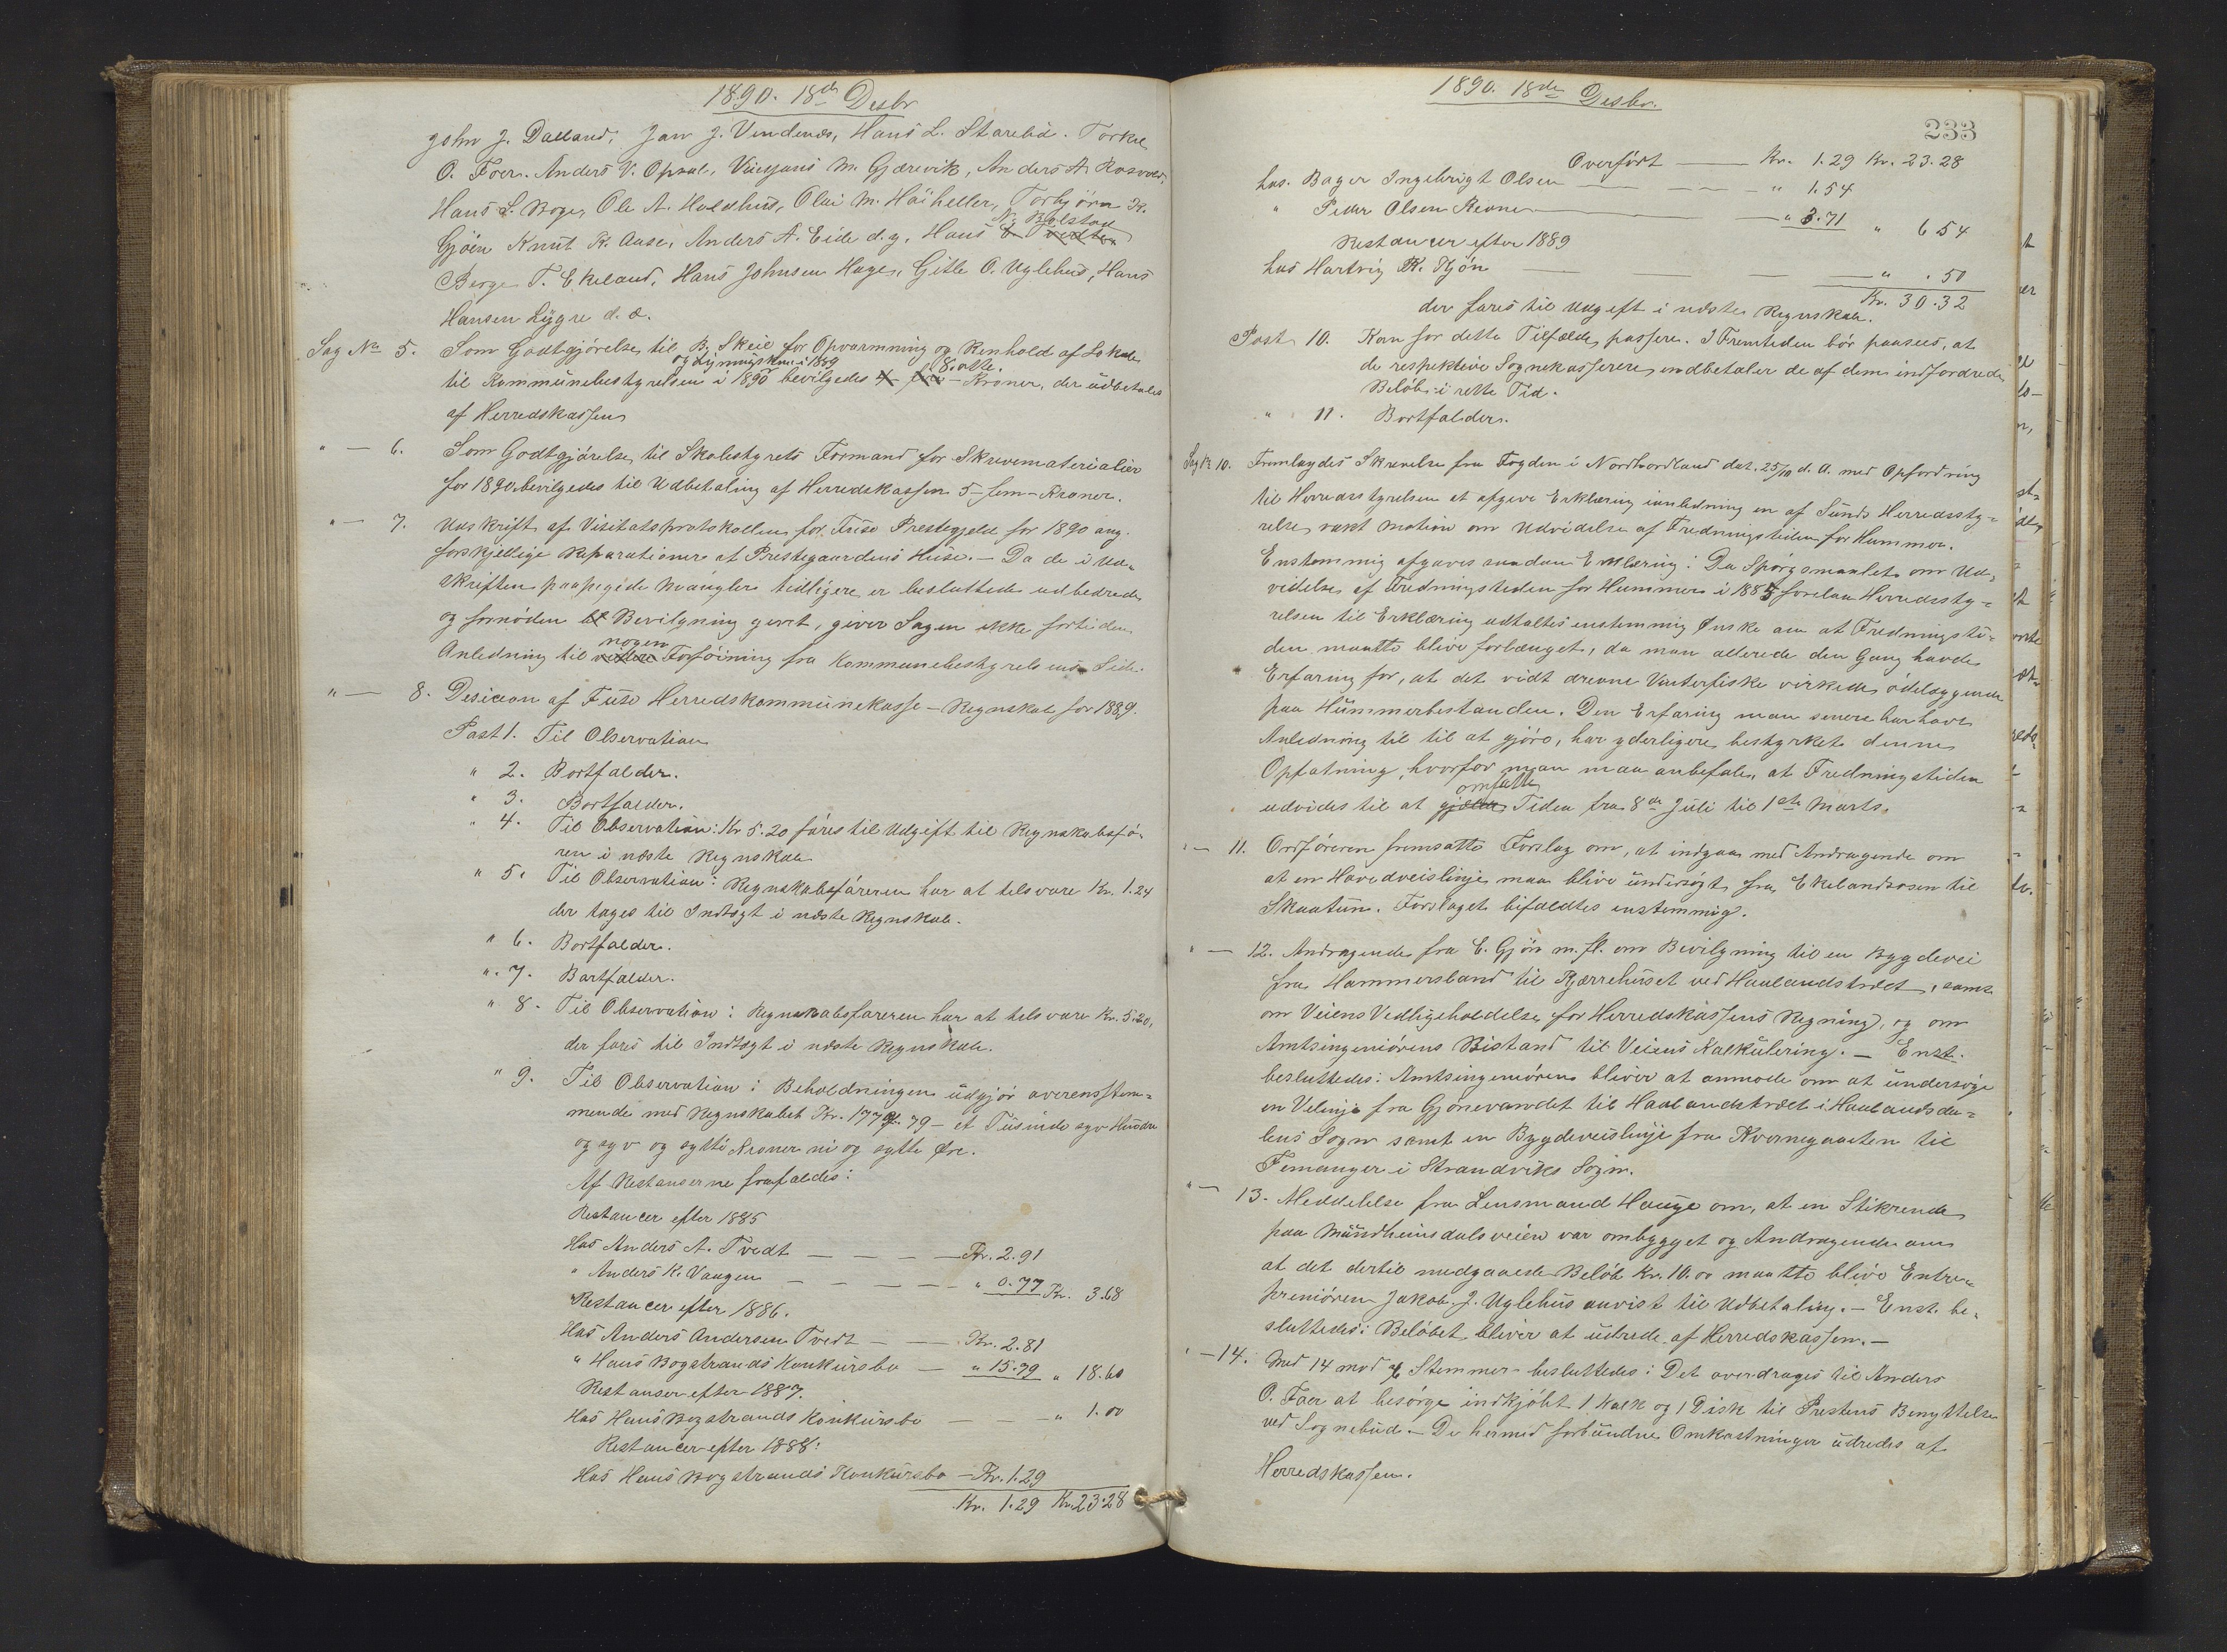 1890. 18de Desbr
John J. Dalland, Jan J. Vindenes, Hans L. Starelid. Torkel
O. Foer. Anders V. Opsal, Vincents M. Gjærevik, Anders A. Rosvold,
Hans L. Boge, Ole A. Holdhus, Olai M. Höiheller, Torbjörn K.
N. Bolstad
Gjöen Knut K. Aase, Anders A. Eide d.y., Hans
Berge T. Ekeland, Hans Johnsen Hage, Gitle O. Uglehus, Hans
Hansen Lygre d. æ.
Sag No 5. Som Godtgjörelse til B. Skeie for Opvarmning og Renhold af Lokale
og Ligningskom. i 1889
8-otte.
til Kommunebestyrelsen i 1890 bevilgedes - Kroner, der udbetales
af Herredskassen
" — 6. Som Godtgjörelse til Skolestyrets Formand for Skrivematerialier
for 1890 bevilgedes til Udbetaling af Herredskassen 5-fem-Kroner.
" — 7. Udskrift af Visitatsprotokollen for Fuse Prestegjeld for 1890 ang.
forskjellige Reparationer at Prestegaardens Huse. — Da de i Ud-
skriften paapegede Mangler tidligere er besluttede udbedrede
og fornöden Bevilgning gjort, giver Sagen ikke fortiden
nogen
Anledning til Forföining fra Kommunebestyrelsens Side.
" — 8. Desision af Fuse Herredskommunekasse-Regnskab for 1889.
Post 1. Til Observation
" 2. Bortfalder.
" 3. Bortfalder.
" 4. Til Observation: Kr 5.20 föres til Udgift til Regnskabsfö-
ren i næste Regnskab
" 5. Til Observation: Regnskabsföreren har at tilsvare Kr. 1.24
der tages til Indtægt i næste Regnskab.
" 6. Bortfalder.
" 7. Bortfalder.
" 8. Til Observation: Regnskabsföreren har at tilsvare Kr. 5.20,
der föres til Indtægt i næste Regnskab.
" 9. Til Observation: Beholdningen udgjör overensstem-
mende med Regnskabet Kr. 1777.79 - et Tusinde syv Hundre
og syv og sytti Kroner ni og sytti Öre.
Af Restanserne frafaldes:
Restancer efter 1885
Hos Anders A. Tvedt — — — — Kr. 2.91
" Anders K. Vaagen — — — — — " 0.77 Kr. 3.68
Restancer efter 1886.
Hos Anders Andersen Tvedt — — Kr. 2.81
" Hans Bogstrands Konkursbo — " 15.79 " 18.60
Restanser efter 1887.
Hos Hans Bogstrands Konkursbo — — — " 1.00
Restancer efter 1888:
Hos Hans Bogstrands Konkursbo — Kr. 1.29
Kr. 1.29 Kr. 23.28
1890. 18de Desbr.
233
Overfört — Kr. 1.29 Kr. 23.28
hos. Bager Ingebrigt Olsen — — — — " 1.54
" Peder Olsen Revne — " 3.71 " 6 54
Restancer efter 1889
hos Hartvig K. Gjön — — — " . 50
Kr. 30.32
der föres til Udgift i næste Regnskab.
Post 10. Kan for dette Tilfælde passere. I Fremtiden bör paasees, at
de respektive Sognekasserere indbetaler de af dem indfordrede
Belöb i rette Tid.
" 11. Bortfalder.
Sag No 10. Fremlagdes Skrivelse fra Fogden i Nordhordland dat. 25/10 d. A. med Opfordring
til Herredsstyrelsen at afgive Erklæring ianledning en af Sunds Herredssty-
relse vakt Motion om Udvidelse af Fredningstiden for Hummer.
Enstemmig afgaves saadan Erklæring: Da Spörgsmaalet om Ud-
videlse af Fredningstiden for Hummer i 1885 forelaa Herredssty-
relsen til Erklæring udtaltes enstemmig Ønske om at Fredningsti-
den maatte blive forlænget, da man allerede den Gang havde
Erfaring for, at det vidt drevne Vinterfiske virkede ödelæggende
paa Hummerbestanden. Den Erfaring man senere har havt
Anledning til til at gjöre, har yderligere bestyrket denne
Opfatning, hvorfor man maa anbefale, at Fredningstiden
omfatte
udvides til at Tiden fra 8de Juli til 1ste Marts.
" — 11. Ordföreren fremsatte Forslag om, at indgaa med Andragende om
at en Hovedveislinje maa blive undersögt fra Ekelandsosen til
Skaatun. Forslaget bifaldtes enstemmig.
" — 12. Andragende fra E. Gjön m. fl. om Bevilgning til en Bygdevei
fra Hammersland til Kjærrehuset ved Haalandstræet, samt
om Veiens Vedligeholdelse for Herredskassens Regning, og om
Amtsingeniörens Bistand til Veiens Kalkulering. — Enst.
besluttedes: Amtsingeniören bliver at anmode om at undersöge
en Velinje fra Gjönevandet til Haalandstræet i Haalandsda-
lens Sogn samt en Bygdeveislinje fra Kvernegaarten til
Femanger i Strandviks Sogn.
" — 13. Meddelelse fra Lensmand Hauge om, at en Stikrende
paa Mundheimsdalsveien var ombygget og Andragende om
at det dertil medgaaede Belöb Kr. 10.00 maatte blive Entre-
preniören Jakob J. Uglehus anvist til Udbetaling. — Enst. be-
sluttedes: Belöbet bliver at udrede af Herredskassen. —
" — 14. Med 14 mod Stemmer besluttedes: Det overdrages til Anders
O. Foer at besörge indkjöbt 1 Kalk og 1 Disk til Prestens Benyttelse
ved Sognebud. — De hermed forbundne Omkostninger udredes af
Herredskassen.